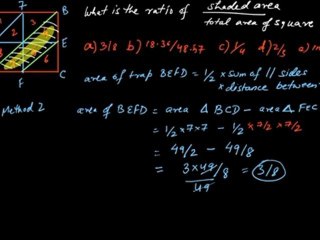 What is the ratio of shaded area
total area of square
7 B
1 2 3
E
6
F C
a) 3/8 b) 18.36/48.57 c) 1/4 d) 2/5 e)
area of trap BEFD = 1/2 × sum of // sides
× distance between
Method 2
area of BEFD = area Δ BCD - area Δ FEC
= 1/2 × 7 × 7 - 1/2 × 7/2 × 7/2
= 49/2 - 49/8
= 3 × 49/8 = 3/8
49